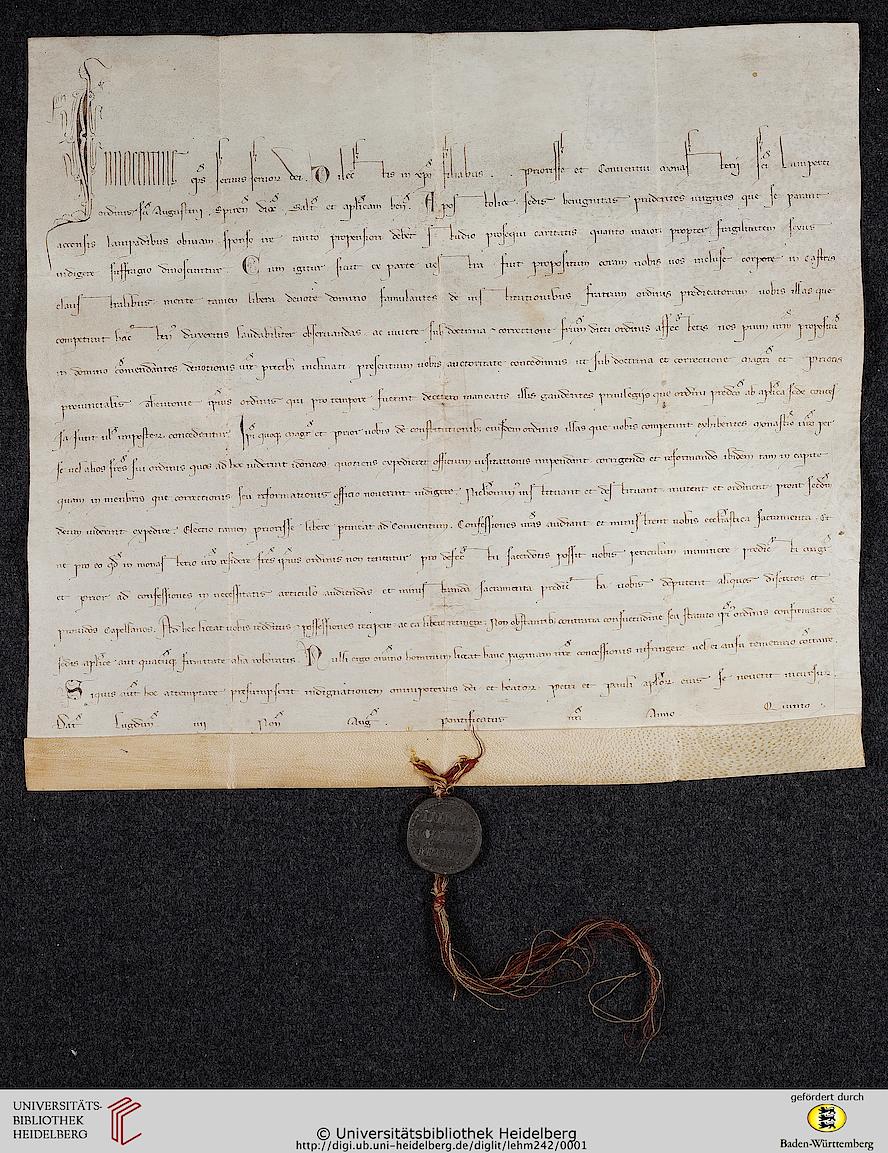 Innocentius eps seruus seruor dei. Dilectis in xpo filiabus . . Priorisse et Conuentui monasterii sci Lamperti
ordinis sci Augustini . Spiren dioc . Salt et aplicam ben . Apostolice sedis benignitas prudentes uirgines que se parant
accensis lampadibus obuiam sponso ire tanto propensiori debet studio prosequi caritatis quanto maiori propter fragilitatem sexus
indigere suffragio dinoscuntur . Cum igitur sicut ex parte uestra fuit propositum coram nobis uos incluse corpore in castris
claustralibus mente tamen libera deuote domino famulantes de institutionibus fratrum ordinis predicatorum uobis illas que
competunt hactenus duxeritis laudabiliter obseruandas ac uiuere sub doctrina et correctione frum dicti ordinis affectetis nos pium urm propositu
in domino comendantes deuotionis ure precib inclinati presentium uobis auctoritate concedimus ut sub doctrina et correctione magri et Prioris
prouincialis Theutonie ipius ordinis qui pro tempore fuerint decetero maneatis illis gaudentes priuilegijs que ordini predco ab aplica sede conces
sa sunt uel imposter concedentur . Ipi quoq magr et prior uobis de constitutionib eiusdem ordinis illas que uobis competunt exhibentes monastio uro per
se uel alios fres sui ordinis quos ad hoc uiderint idoneos quotiens expedierit officium uisitationis impendant corrigendo et reformando ibidem tam in capite
quam in membris que correctionis seu reformationis officio nouerint indigere . Nichilominus instituant et destituant mutent et ordinent prout secdm
deum uiderint expedire . Electio tamen priorisse libere ptineat ad Conuentum . Confessiones uras audiant et ministrent uobis ecclastica sacramenta . Et
ne pro eo qd in monasterio uro residere fres ipius ordinis non tenentur pro defectu sacerdotis possit uobis periculum imminere predicti magr
et prior ad confessiones in necessitatis articulo audiendas et ministranda sacramenta predicta uobis deputent aliquos discretos et
prouidos Capellanos . Ad hec liceat uobis redditus et possessiones recipere ac ea libere retinere . Non obstantib contraria consuetudine seu statuto ipi ordinis confirmatioe
sedis aplice aut quacuq firmitate alia roboratis . Nulli ergo omnino hominum liceat hanc paginam nre concessionis infringere uel ei ausu temerario contraire .
Siquis aut hoc attemptare presumpserit indignationem omnipotentis dei et beator Petri et Pauli aplor eius se nouerit incursur .
Dat Lugdun iiii Non Aug . pontificatus nri Anno Quinto .
UNIVERSITÄTS-
BIBLIOTHEK
HEIDELBERG
© Universitätsbibliothek Heidelberg
http://digi.ub.uni-heidelberg.de/diglit/lehm242/0001
gefördert durch
Baden-Württemberg